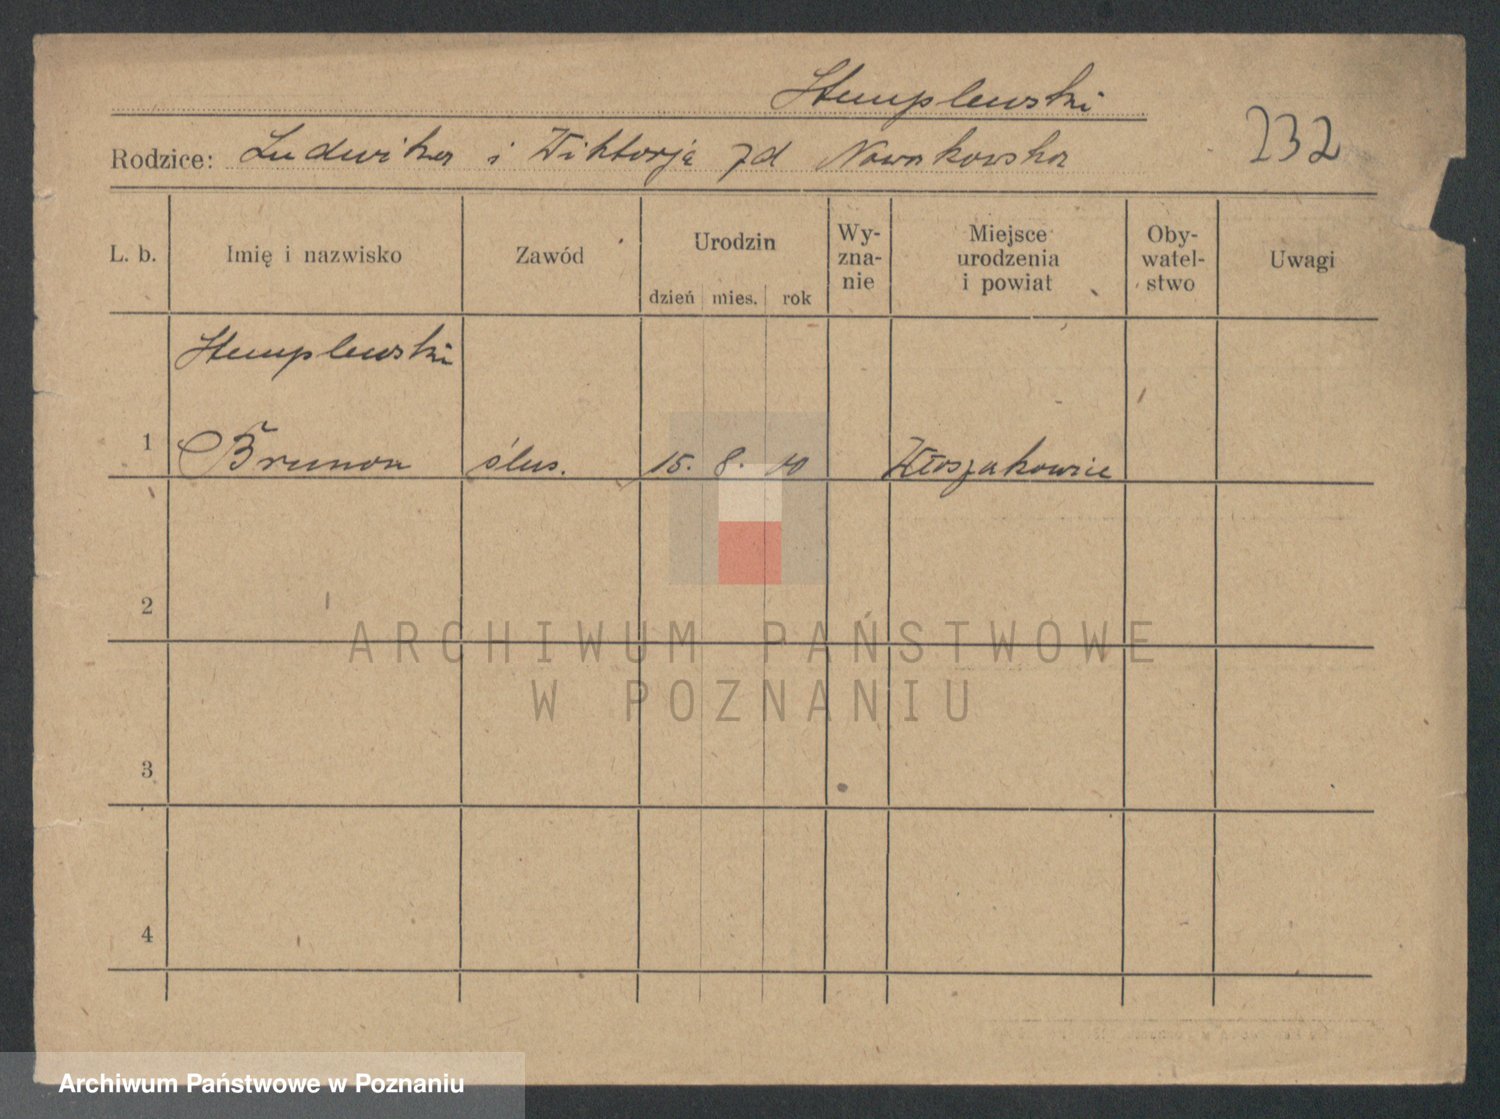 Stemplewski
Rodzice: Ludwika i Wiktorja zd Nowakowska
232
L. b. Imię i nazwisko Zawód Urodzin Wy-zna-nie Miejsce urodzenia i powiat Oby-watel-stwo Uwagi
dzień mies. rok
Stemplewski
1 Brunon ślus. 15. 8. 10 Włoszakowice
2
3
4
ARCHIWUM PAŃSTWOWE
W POZNANIU
Archiwum Państwowe w Poznaniu